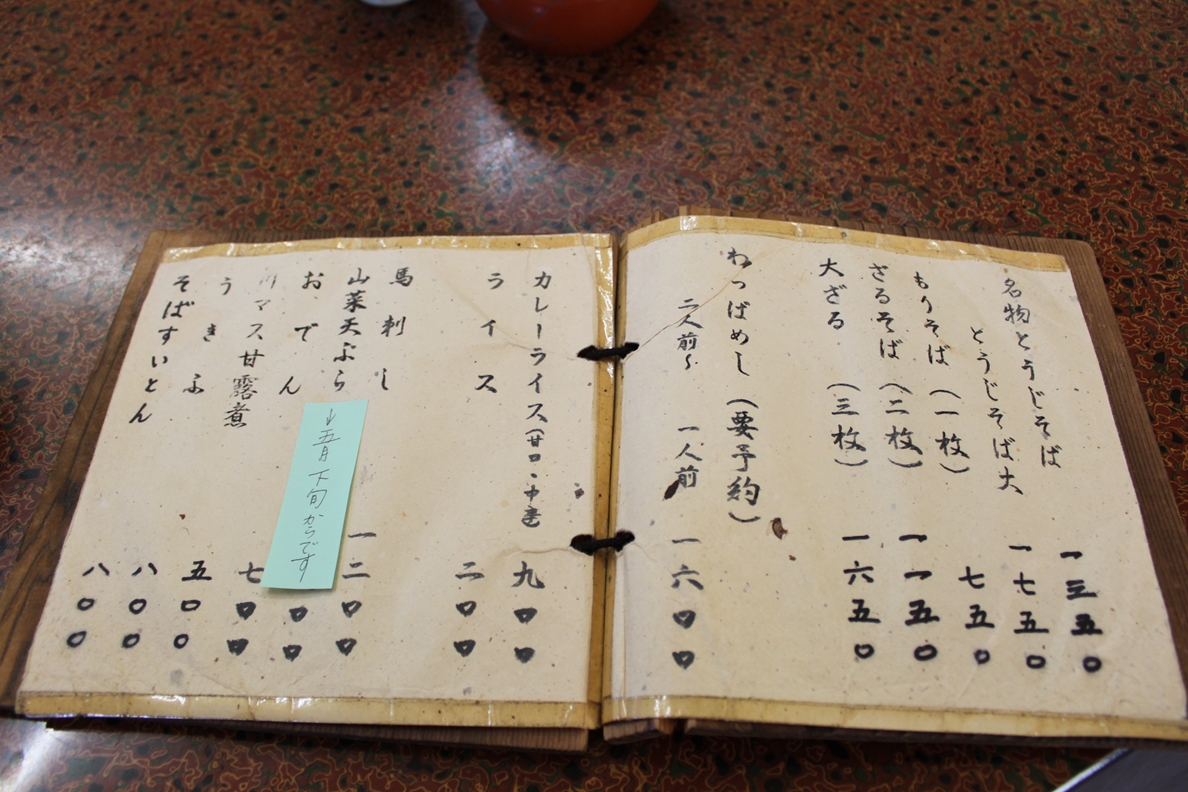 名物とうじそば 一三五〇
とうじそば大 一七五〇
もりそば(一枚) 七五〇
ざるそば(二枚) 一一五〇
大ざる(三枚) 一六五〇
わっぱめし(要予約)
二人前〜 一人前 一六〇〇
カレーライス(甘口・中辛) 九〇〇
ライス 二〇〇
馬刺し 一二〇〇
山菜天ぷら 〇〇
↓五月下旬からです
おでん 七〇〇
川マス甘露煮 五〇〇
うきふ 八〇〇
そばすいとん 八〇〇